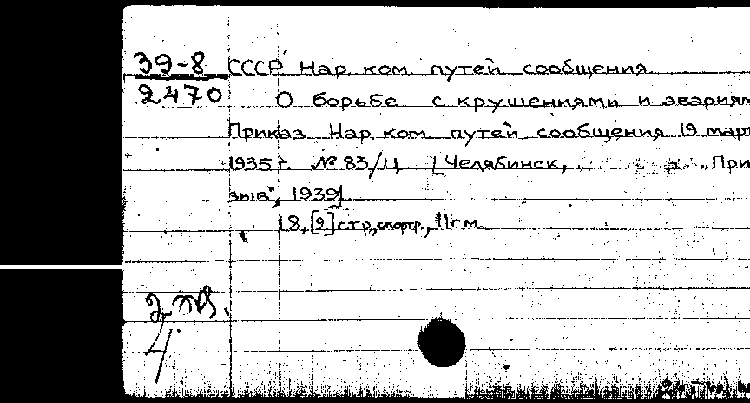 39-8
2470
СССР Нар. ком. путей сообщения.
О борьбе с крушениями и авариям
Приказ Нар. ком. путей сообщения 19 мар
1935 г. № 83/Ц [Челябинск, При
1939].
18, [2] стр., 11 см
2 экз.
4